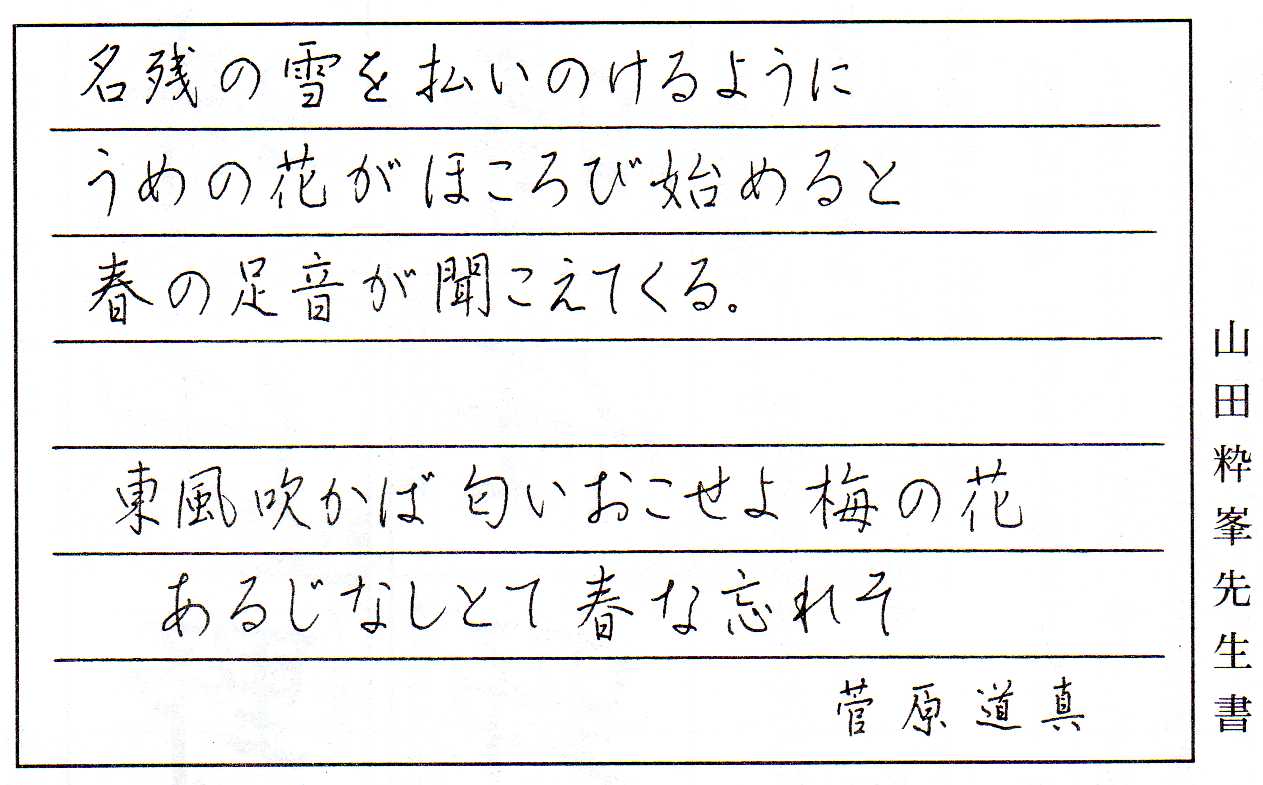 名残の雪を払いのけるように
うめの花がほころび始めると
春の足音が聞こえてくる。
東風吹かば 匂いおこせよ 梅の花
あるじなしとて 春な忘れそ
菅原道真
山田粋峯先生書